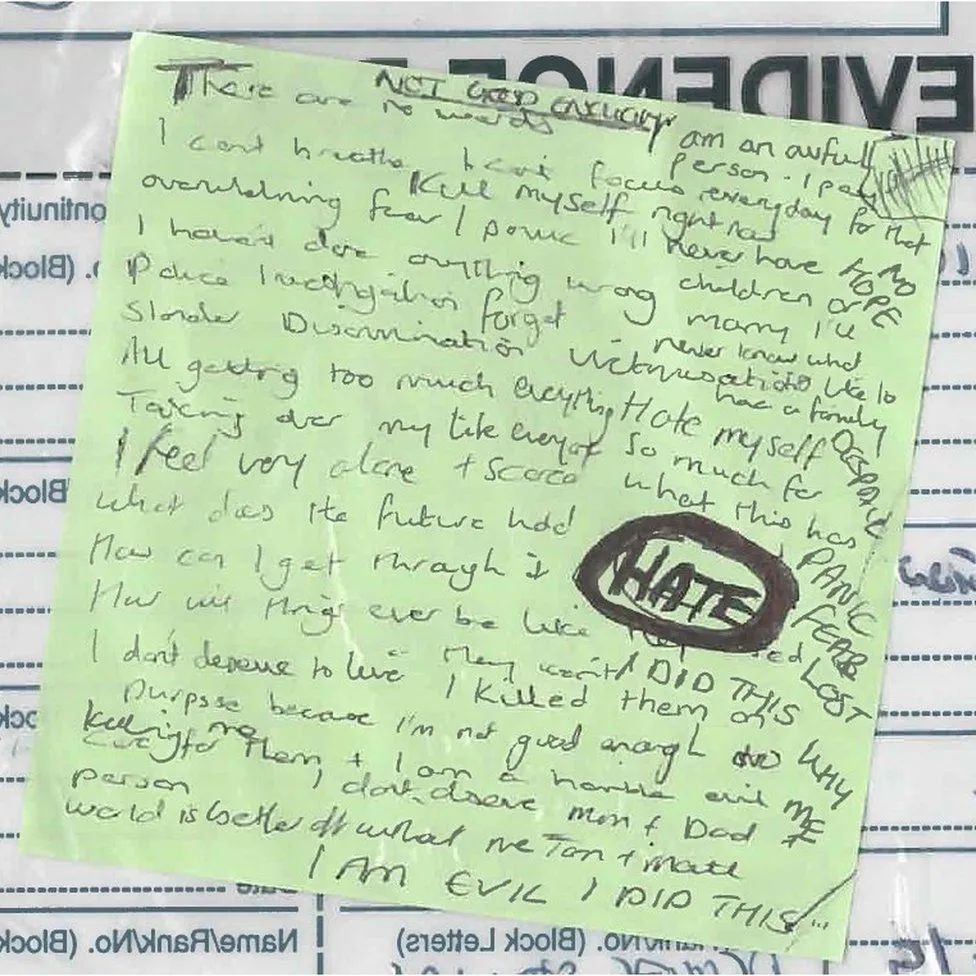 EVIDENCE
NOT GOOD ENOUGH
There are no words
I am an awful
person. I pay
everyday for that
right now
I cant breathe I cant focus
Kill myself
overwhelming fear / panic
I'll never have
children or
marry I'll
never know what
like to
have a family
NO
HOPE
I haven't done anything wrong
Police Investigation forget
Slander Discrimination Victimisation
All getting too much everything
Taking over my life
Hate myself
so much for
what this has
DESPAIR
PANIC
FEAR
LOST
I feel very alone + scared
What does the future hold
How can I get through it
HATE
How will things ever be like
they
I DID THIS
WHY
ME
I don't deserve to live I killed them on
purpose because I'm not good enough to
care for them + I am a horrible evil
person I don't deserve mom + Dad
Killing me
world is better off without me Tom + Matt
I AM EVIL I DID THIS
Continuity
No. (Block
(Block
(Block
Name/Rank/No. (Block
Name/Rank/No. (Block Letters)